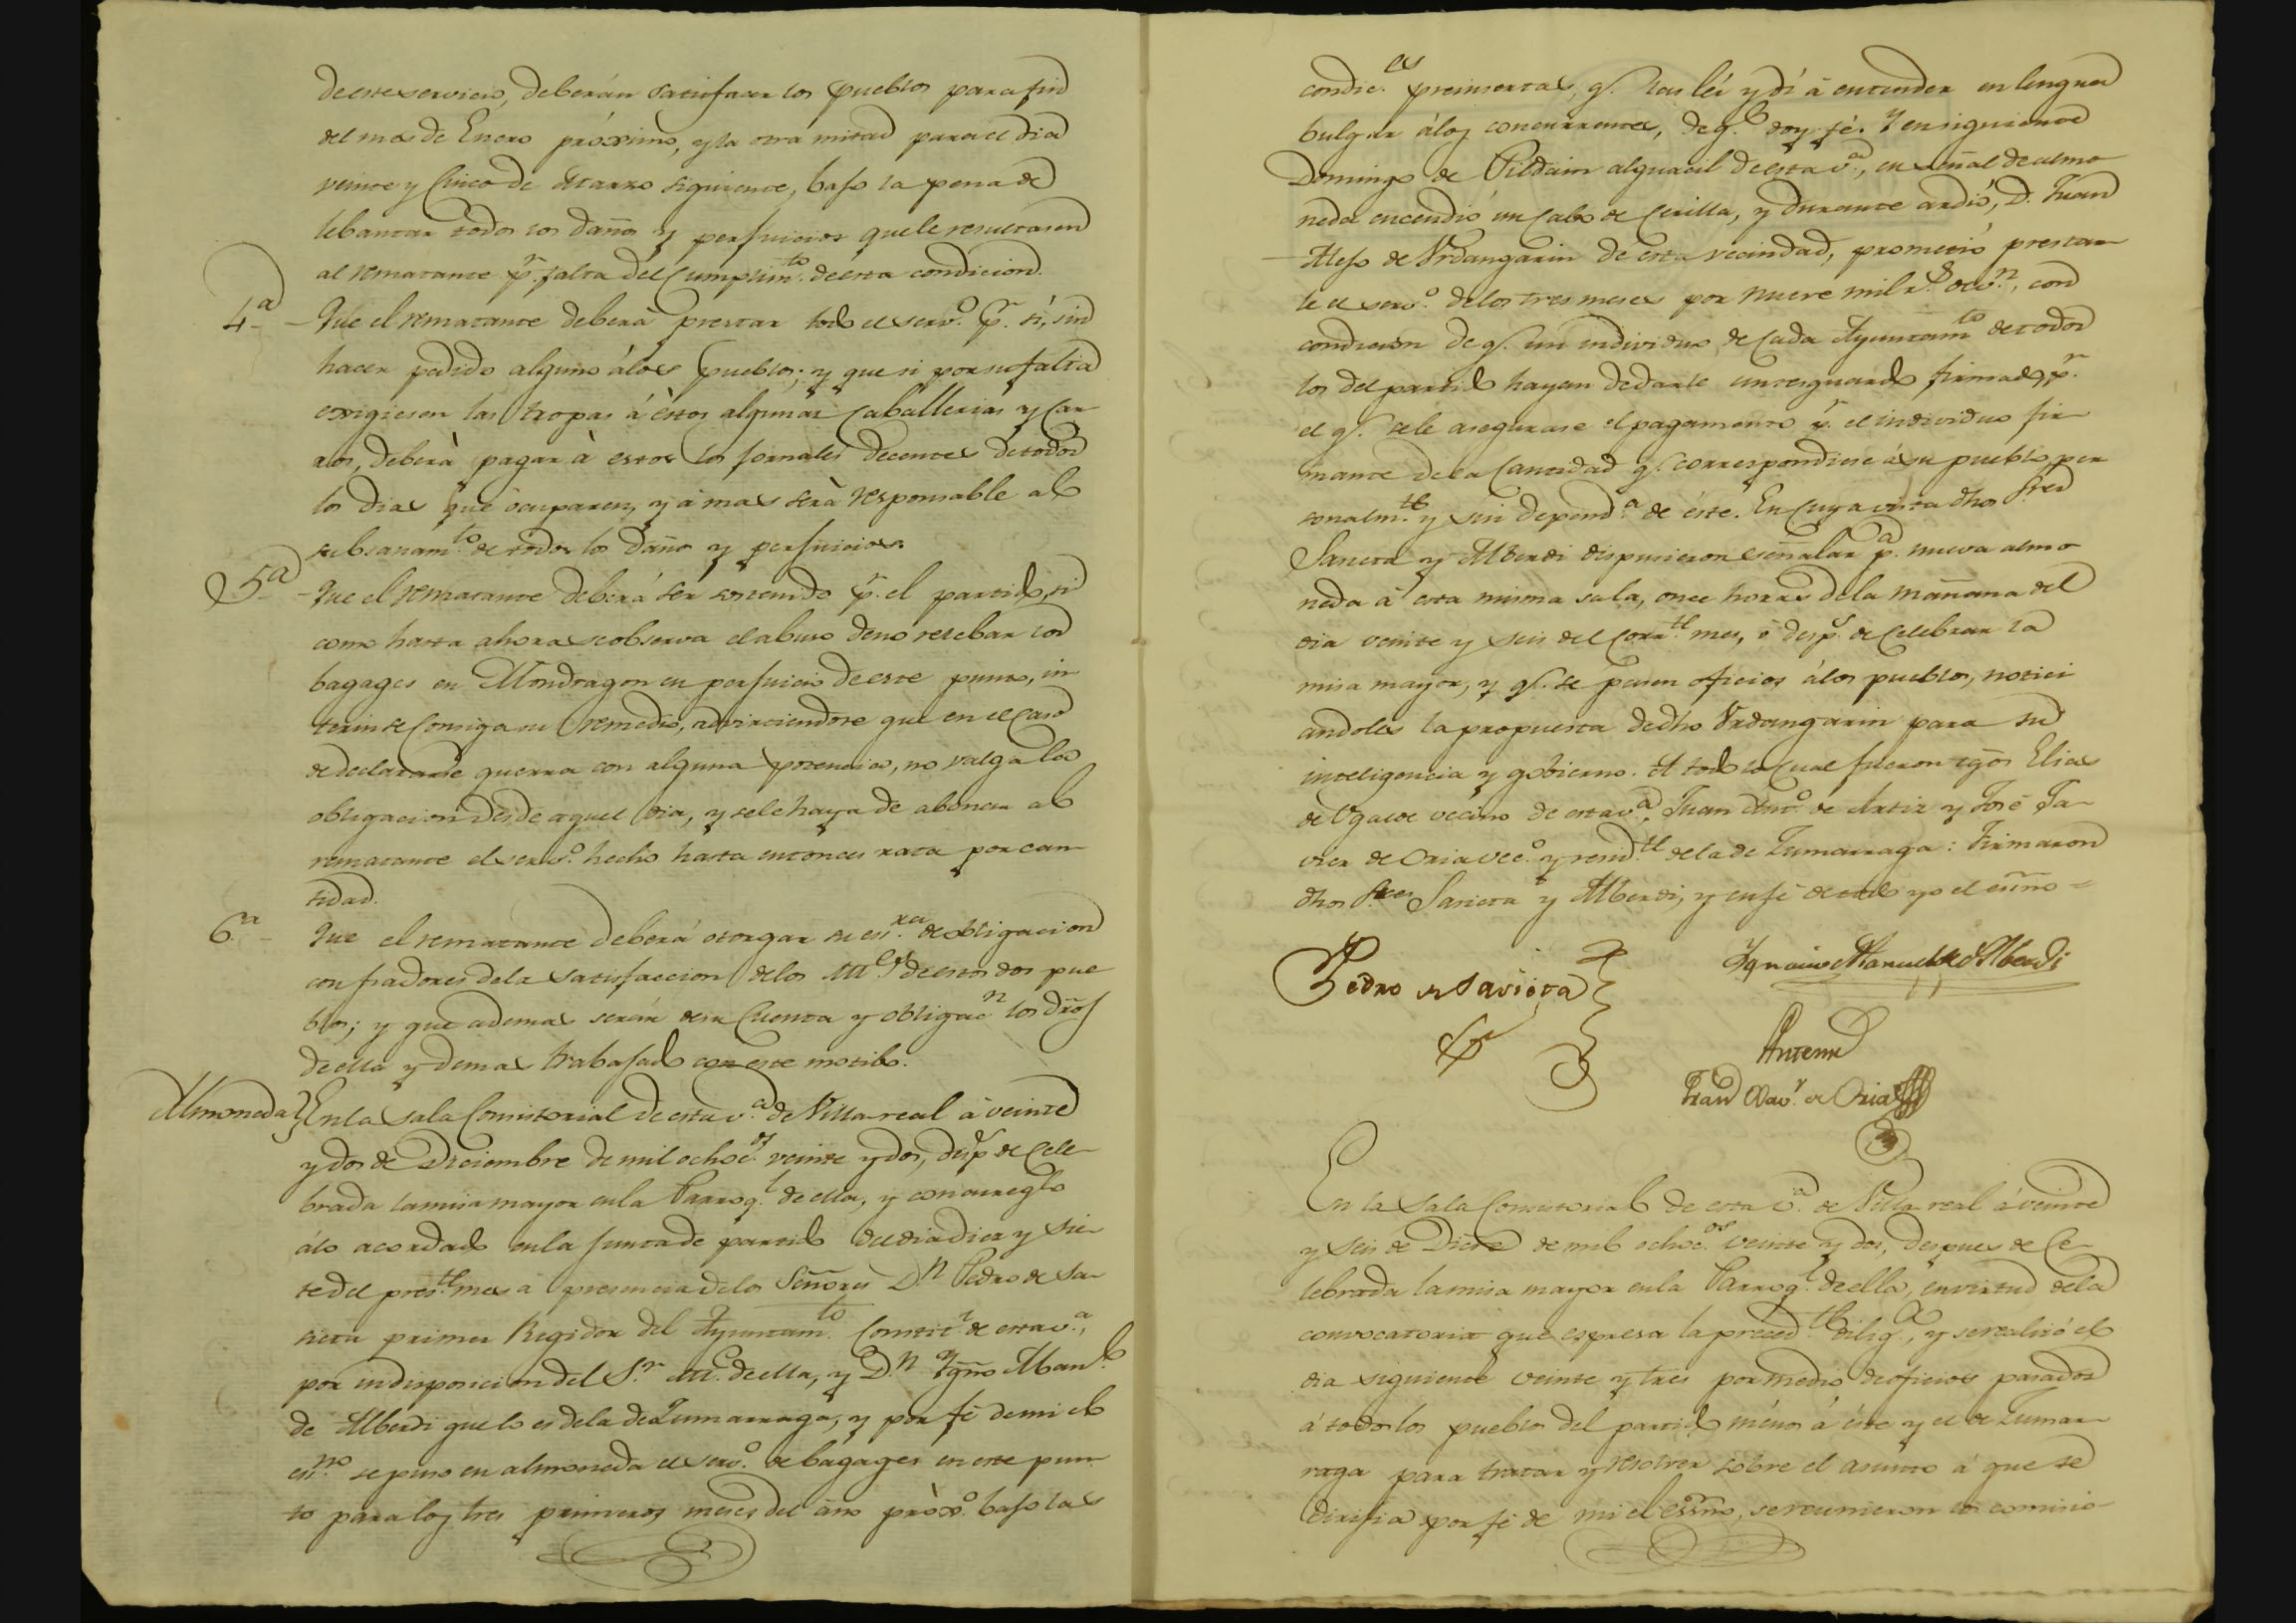 de este servicio, deberán satisfacer los pueblos para fin
del mes de Enero próximo, y la otra mitad para el dia
veinte y cinco de Marzo siguiente, bajo la pena de
lebantar todos los daños y perjuicios que le resultasen
al rematante p.r falta del cumplim.to de esta condicion.
4.a - Que el rematante deberá prestar todo el serv.o p.r sí, sin
hacer pedido alguno á los pueblos; y que si por su falta
exigiesen las tropas á éstos algunas caballerias y car
ros, deberà pagar à estos los jornales decentes de todos
los dias que ocuparen, y á mas serà responsable al
subsanam.to de todos los daños y perjuicios.
5.a - Que el rematante deberá ser sostenido p.r el partido, si
como hasta ahora se observa el abuso de no relebar los
bagages en Mondragon en perjuicio de este punto, in
terin se consiga su remedio, advirtiendose que en el caso
de declararse guerra con alguna potencia, no valga la
obligacion desde aquel dia, y se le haya de abonar al
rematante el serv.o hecho hasta entonces rata por can
tidad.
6.a - Que el rematante deberá otorgar su ess.ra de obligacion
con fiadores de la satisfaccion de los Al.es de estos dos pue
blos; y que ademas serán de su cuenta y obligac.n los dros
de ella y demas trabajado con este motibo.
Almoneda } En la Sala Consistorial de esta v.a de Villarreal á veinte
y dos de Diciembre de mil ochoc.os veinte y dos, desp.s de cele-
brada la misa mayor en la Parroq.l de ella, y con arreglo
á lo acordado en la junta de partido del dia diez y sie-
te del pres.te mes á presencia de los Señores D.n Pedro de Sa-
rieta primer Regidor del Ayuntam.to Constit.l de esta v.a,
por indisposicion del S.r Al.e de ella, y D.n Ygn.o Man.l
de Alberdi que lo es de la de Zumarraga, y por fé de mi el
ess.no se puso en almoneda el serv.o de bagages en este pun
to para los tres primeros meses del año pròx.o bajo las
condic.es preinsertas, q.e las leí y dí á entender en lengua
bulgar á los concurrentes, de q.e doy fé. Y en siguiente
Domingo de Pildain alguacil de esta v.a, en señal de almo
neda encendió un cabo de cerilla, y durante ardió, D. Juan
Alejo de Urdangarin de esta vecindad, prometió prestar
le el serv.o de los tres meses por nueve mil r.s de v.n, con
condicion de q.e un individuo de cada Ayuntam.to de todos
los del partido hayan de darle un resguardo firmado, p.r
el q.e se le asegurase el pagamento p.r el individuo fir
mante de la cantidad q.e correspondiese á su pueblo per
sonalm.te y sin depend.a de éste. En cuya vista dhos Sres
Sarieta y Alberdi dispusieron señalar p.a nueva almo
neda á esta misma sala, once horas de la mañana del
dia veinte y seis del corr.te mes, ó desp.s de celebrar la
misa mayor, y q.e se pasen oficios á los pueblos, notici
andoles la propuesta de dho Urdangarin para su
inteligencia y gobierno. A todo lo cual fueron tgos Elias
de Ugalde vecino de esta v.a, Juan Ant.o de Artiz y José Ja-
vier de Oria vec.o y resid.te de la de Zumarraga: Firmaron
dhos Sres Sarieta y Alberdi, y en fé de todo yo el essno =
Pedro de Sarieta
Ygnacio Manuel de Alberdi
Antemi
Fran.co Xav.r de Oria
En la Sala Consistorial de esta v.a de Villarreal á veinte
y seis de Dicre de mil ochoc.os veinte y dos, despues de ce-
lebrada la misa mayor en la Parroq.l de ella, en virtud de la
convocatoria que espresa la preced.te dilig.a, y se realizó el
dia siguiente veinte y tres por medio de oficios pasados
á todos los pueblos del partido ménos á éste y el de Zumar-
raga para tratar y resolver sobre el asunto á que se
dirijia por fé de mi el essno, se reunieron los comisio-